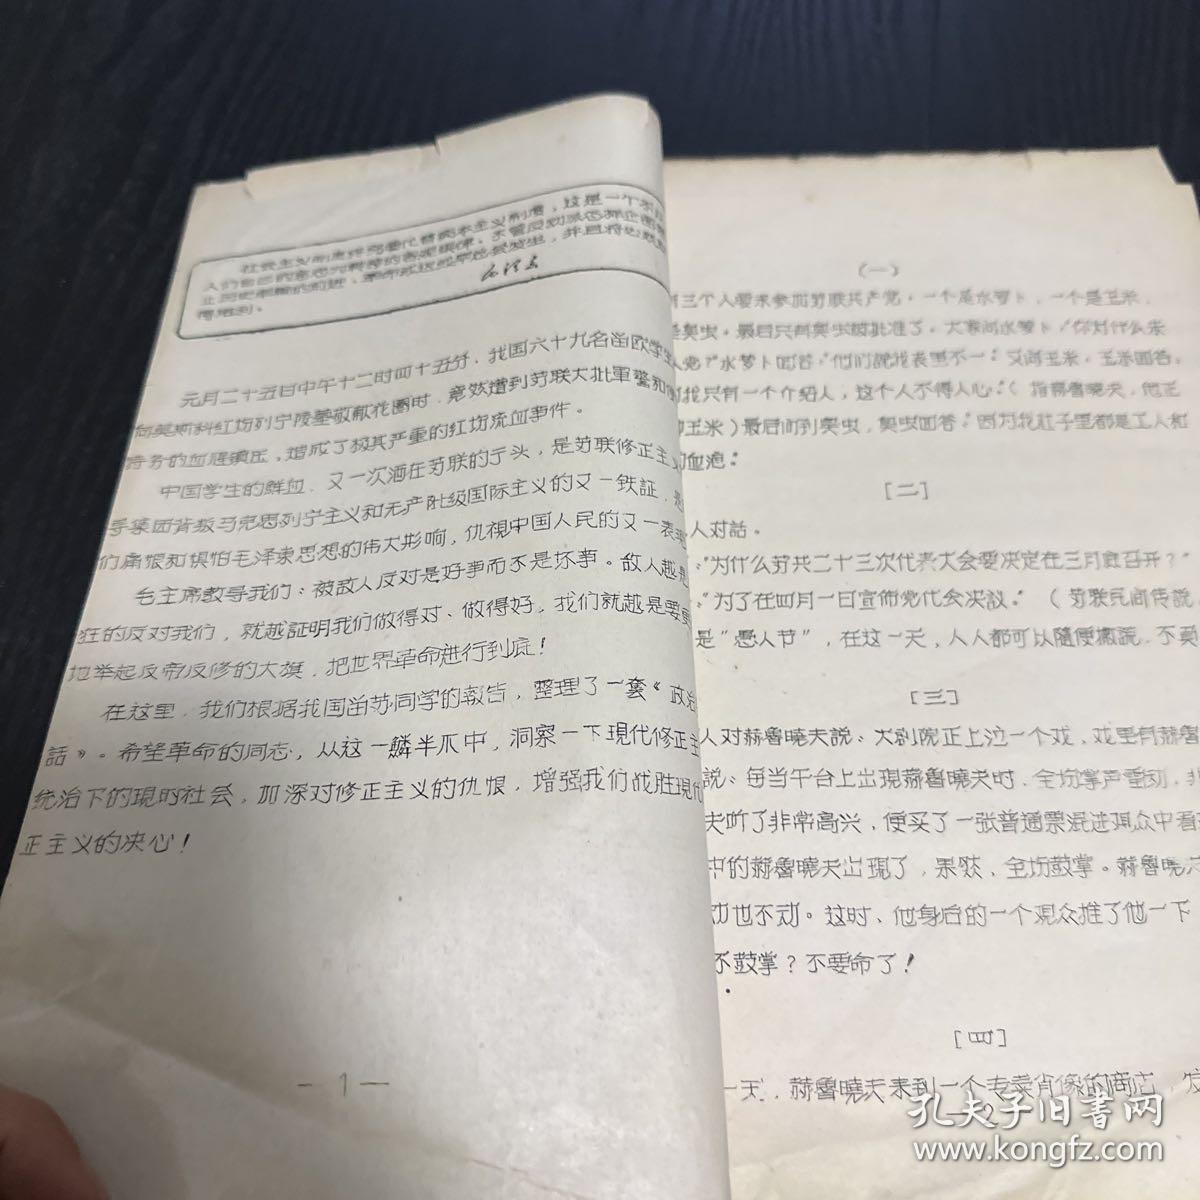 社会主义制度终究要代替资本主义制度，这是一个不以
人们自己的意志为转移的客观规律。不管反动派怎样企图
止历史车轮的前进，革命或迟或早总会发生，并且将必然
得胜利。
毛泽东
元月二十五日中午十二时四十五分，我国六十九名留欧学生
向莫斯科红场列宁陵墓敬献花圈时，竟然遭到苏联大批軍警和
特务的血腥镇压，造成了极其严重的红场流血事件。
中国学生的鲜血，又一次洒在苏联的广头，是苏联修正主
导集团背叛马克思列宁主义和无产阶级国际主义的又一铁証，是
们痛恨和惧怕毛泽东思想的伟大影响，仇視中国人民的又一表
毛主席教导我们：被敌人反对是好事而不是坏事。敌人越是
狂的反对我们，就越証明我们做得对、做得好，我们就越是要
地举起反帝反修的大旗，把世界革命进行到底！
在这里，我们根据我国留苏同学的報告，整理了一套《政治
話》。希望革命的同志，从这一鳞半爪中，洞察一下現代修正主
统治下的現时社会，加深对修正主义的仇恨，增强我们战胜現代
正主义的决心！
— 1 —
（一）
三个人要求参加苏联共产党，一个是水萝卜，一个是玉米，
是臭虫。最后只有臭虫被批准了。大家问水萝卜：“你为什么未
入党？”水萝卜回答：“他们説我表里不一”；又问玉米，玉米回答：
我只有一个介紹人，这个人不得人心：（指赫魯曉夫，他正
玉米）最后问到臭虫，臭虫回答：因为我肚子里都是工人和
的血泡：
[二]
人对話。
：“为什么苏共二十三次代表大会要决定在三月底召开？”
：“为了在四月一日宣佈党代会决議。”（苏联民间传説，
是“愚人节”，在这一天，人人都可以隨便撒謊，不
[三]
人对赫魯曉夫説：大剧院正上边一个戏，戏里有赫魯
説：每当平台上出現赫魯曉夫时，全场掌声雷动，非
夫听了非常高兴，便买了一张普通票混进观众中看
中的赫魯曉夫出現了，果然，全场鼓掌。赫魯曉夫
动也不动。这时、他身后的一个观众推了他一下
不鼓掌？不要命了！
[四]
一天，赫魯曉夫来到一个专卖肖像的商店，发
— 2
孔夫子旧書网
www.kongfz.com